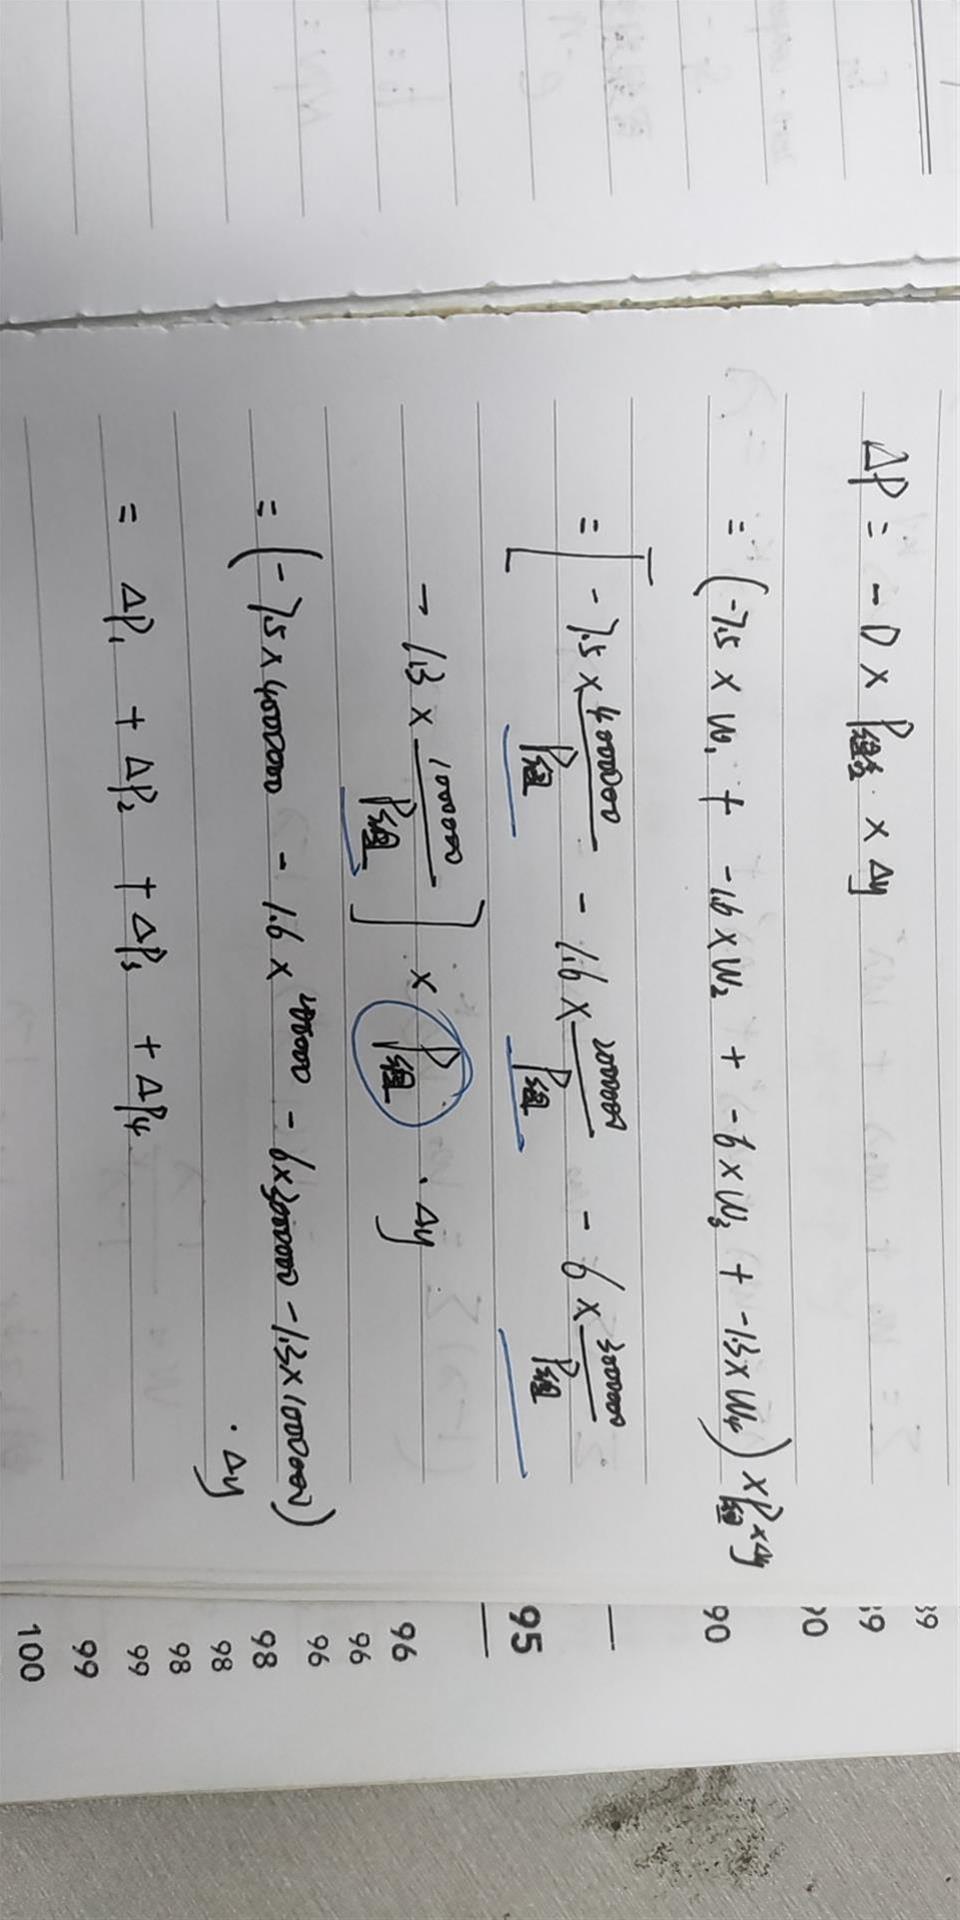 ΔP = - D × P组合 × Δy
= (-7.5 × W₁ + -1.6 × W₂ + -6 × W₃ + -1.3 × W₄) × P组 × Δy
= [ - 7.5 × 4000000/P组 - 1.6 × 2000000/P组 - 6 × 3000000/P组
- 1.3 × 1000000/P组 ] × P组 · Δy
= (- 7.5 × 4000000 - 1.6 × 2000000 - 6 × 3000000 - 1.3 × 1000000)
· Δy
= ΔP₁ + ΔP₂ + ΔP₃ + ΔP₄
90
95
96
96
96
98
98
98
99
99
100